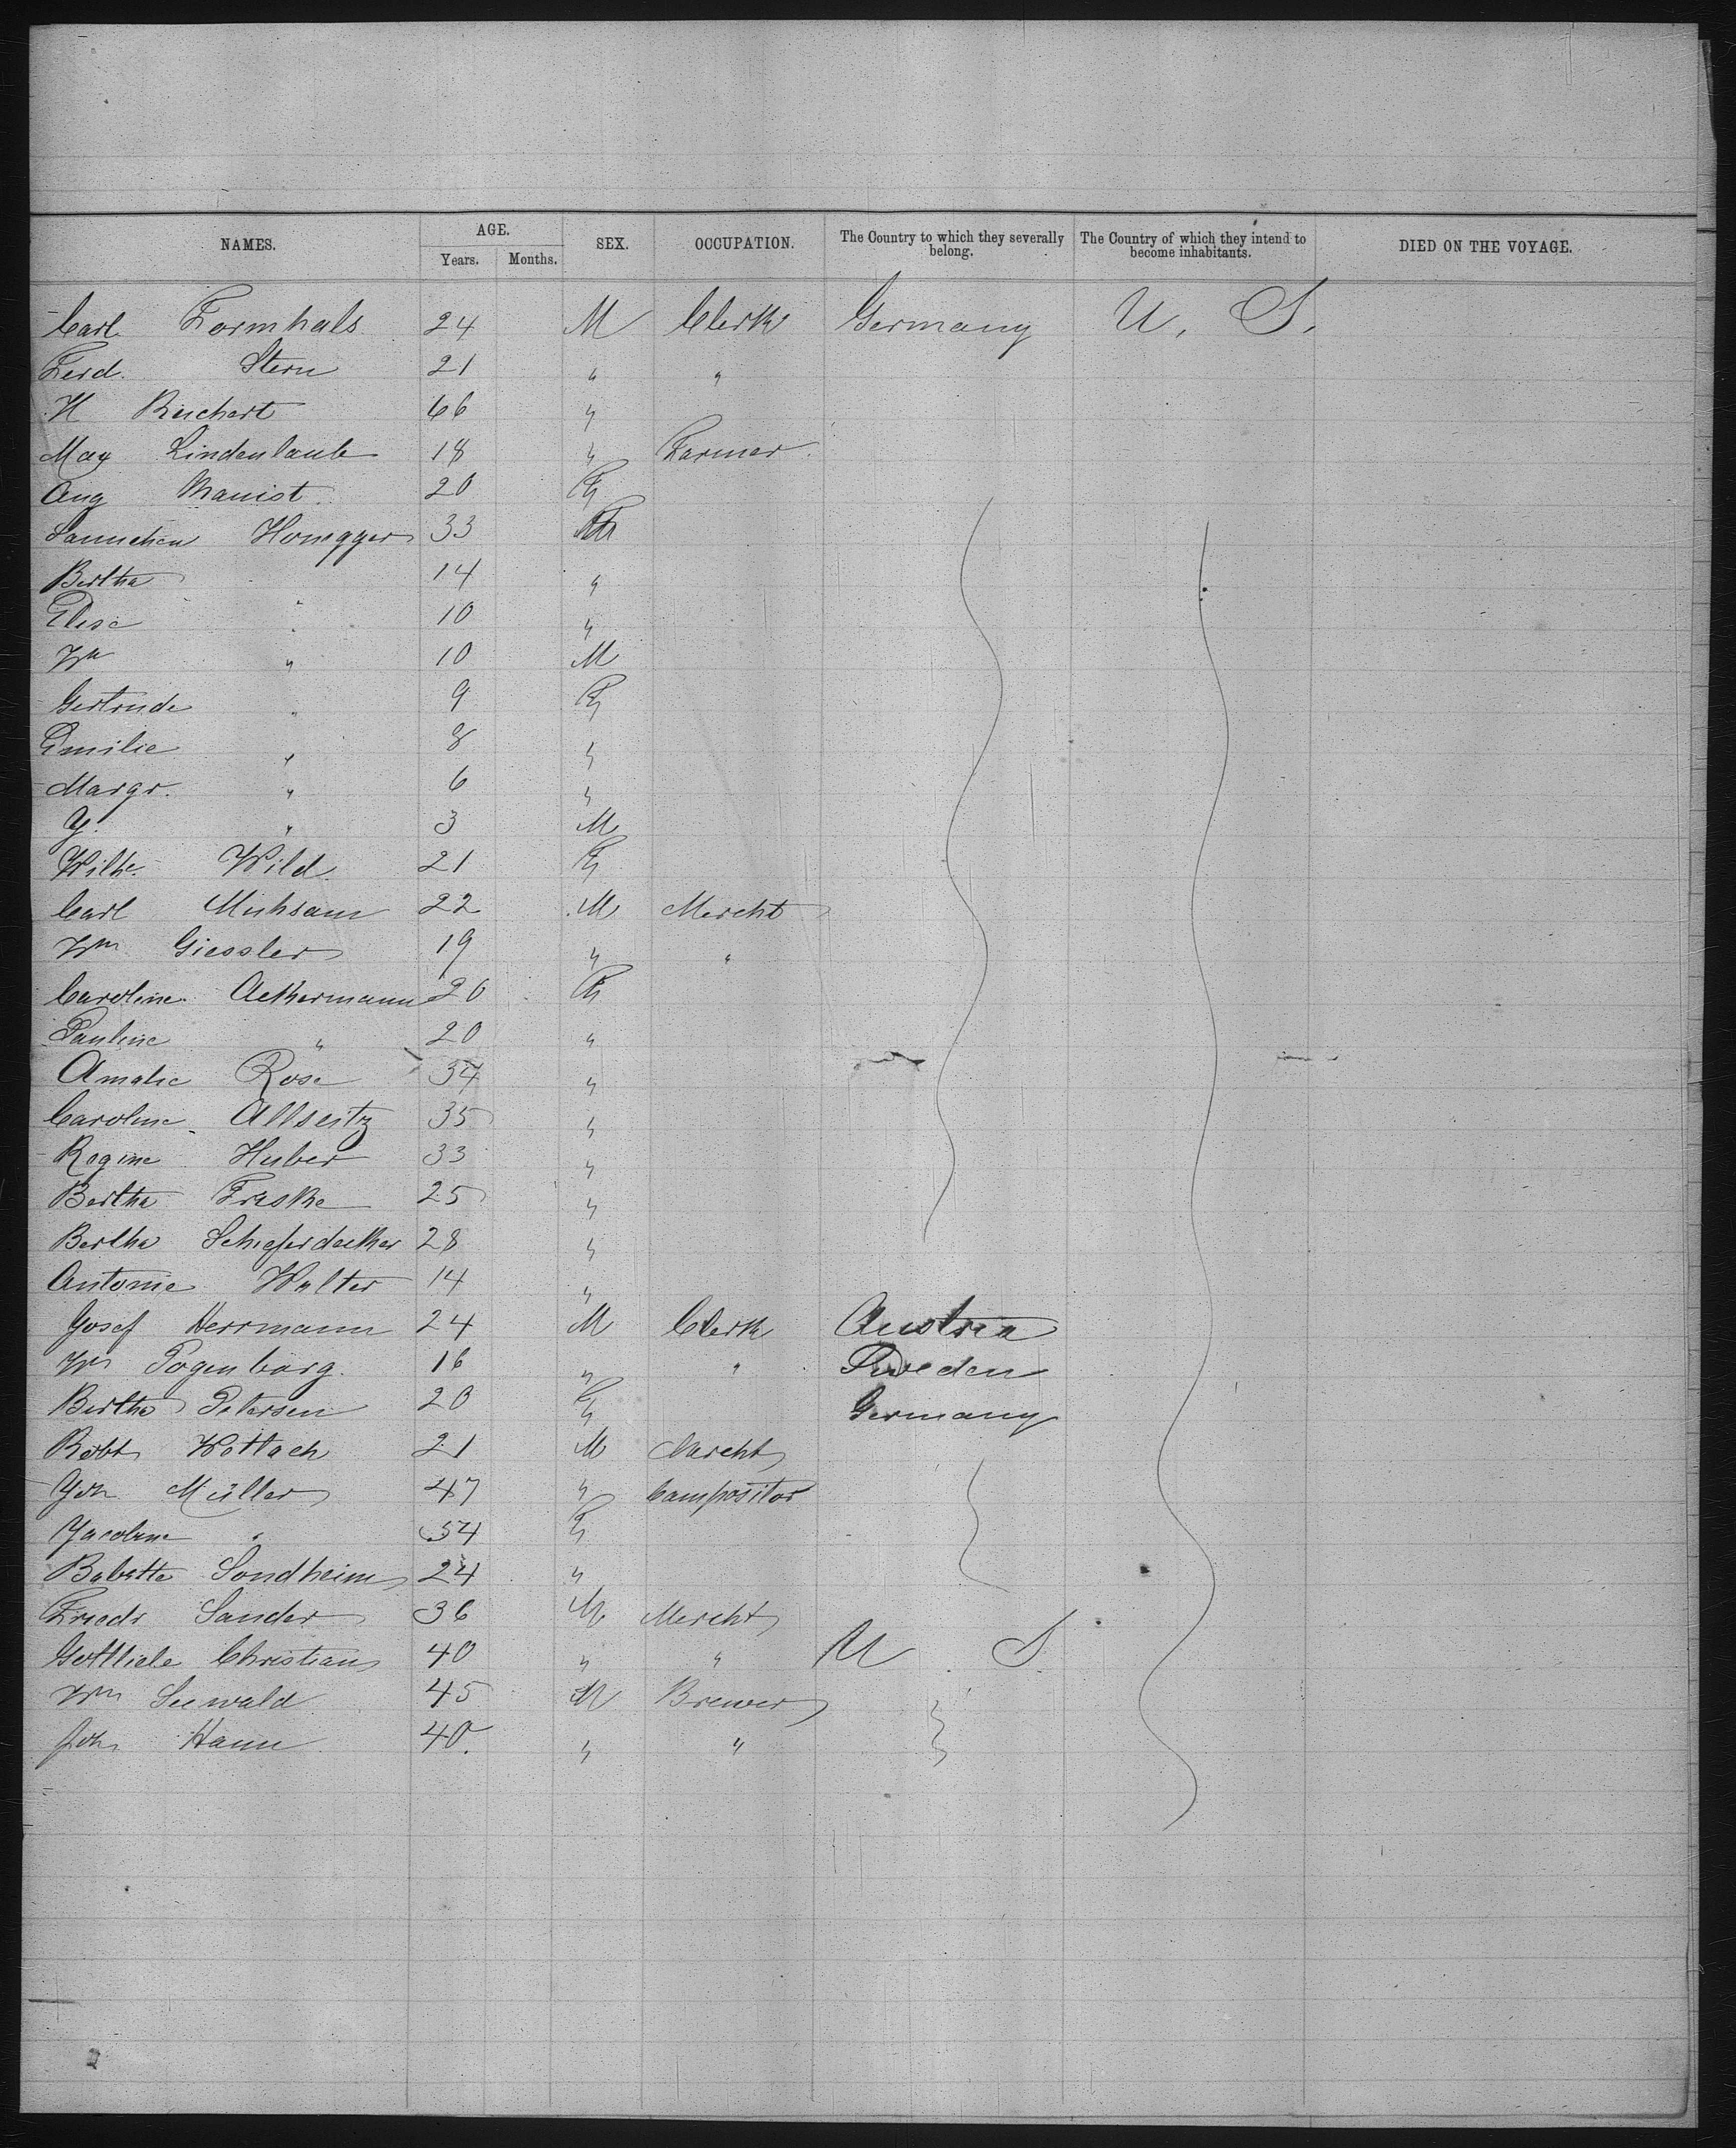 NAMES. AGE. Years. Months. SEX. OCCUPATION. The Country to which they severally belong. The Country of which they intend to become inhabitants. DIED ON THE VOYAGE.
Carl Formhals 24 M Clerk Germany U. S.
Ferd. Stern 21 " "
H Reichert 66 "
Max Lindenlaub 18 " Farmer.
Aug 20 F
Honegger 33 F
Bertha 14 "
Elise " 10 "
Wm " 10 M
Gertrude " 9 F
Emilie " 8 "
Margr. " 6 "
" 3 M
Wilhe. Wild. 21 F
Carl Muhsam 22 M Mercht
Wm Giessler 19 " "
Caroline Ackermann 20 F
Pauline " 20 "
Amalie Rose 34 "
Caroline Allseitz 35 "
Regine Huber 33 "
Bertha Freske 25 "
Bertha Schieferdecker 28 "
Antonie Walter 14 "
Josef Herrmann 24 M Clerk Austria
Wm Pogenburg. 16 " " Sweden
Bertha Petersen 20 F Germany
Robt Wottach 21 M Mercht
Joh Müller 47 " Compositor
Jacobine " 54 F
Babette Sondheim 24 "
Friedr Sander 36 M Mercht
Gottlieb Christians 40 " " U. S.
Wm Seewald 45 M Brewer
Joh Hann 40. " "